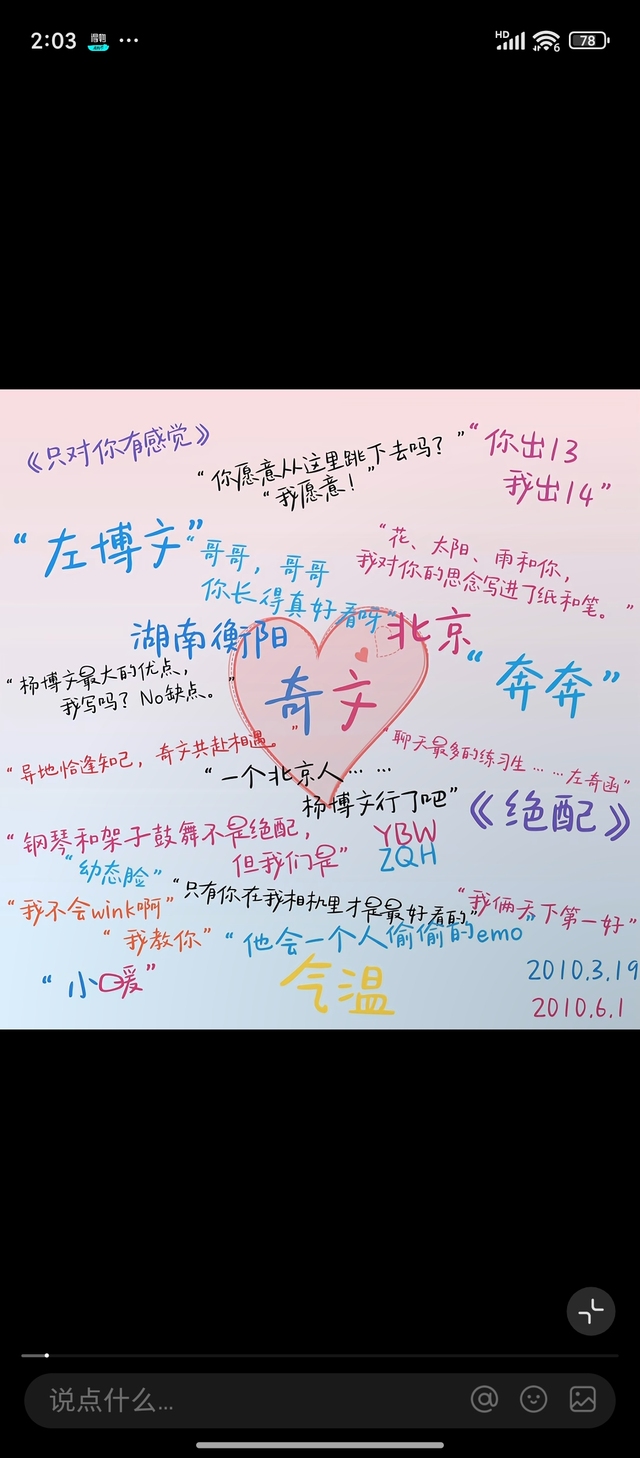 2:03
HD
6
78
《只对你有感觉》
“你愿意从这里跳下去吗？”
“我愿意！”
“你出13
我出14”
“左博文”
“哥哥，哥哥
你长得真好看呀”
“花、太阳、雨和你，
我对你的思念写进了纸和笔。”
湖南衡阳
北京
“杨博文最大的优点，
我写吗？No缺点。”
奇文
“奔奔”
“异地恰逢知己，奇文共赴相遇。”
“聊天最多的练习生……左奇函”
“一个北京人……
杨博文行了吧”
《绝配》
“钢琴和架子鼓舞不是绝配，
但我们是”
YBW
ZQH
“幼态脸”
“只有你在我相机里才是最好看的”
“我不会wink啊”
“我教你”
“我俩天下第一好”
“他会一个人偷偷的emo”
“小口暖”
气温
2010.3.19
2010.6.1
说点什么...